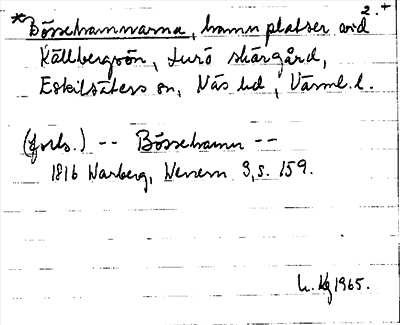 2.+
*Bössehamnarna, hamnplatser vid
Källbergsön, Lurö skärgård,
Eskilsäters sn, Näs hd, Värml. l.
(forts.) -- Bössehamn --
1816 Warberg, Wenern 3, s. 159.
L. Kg 1965.